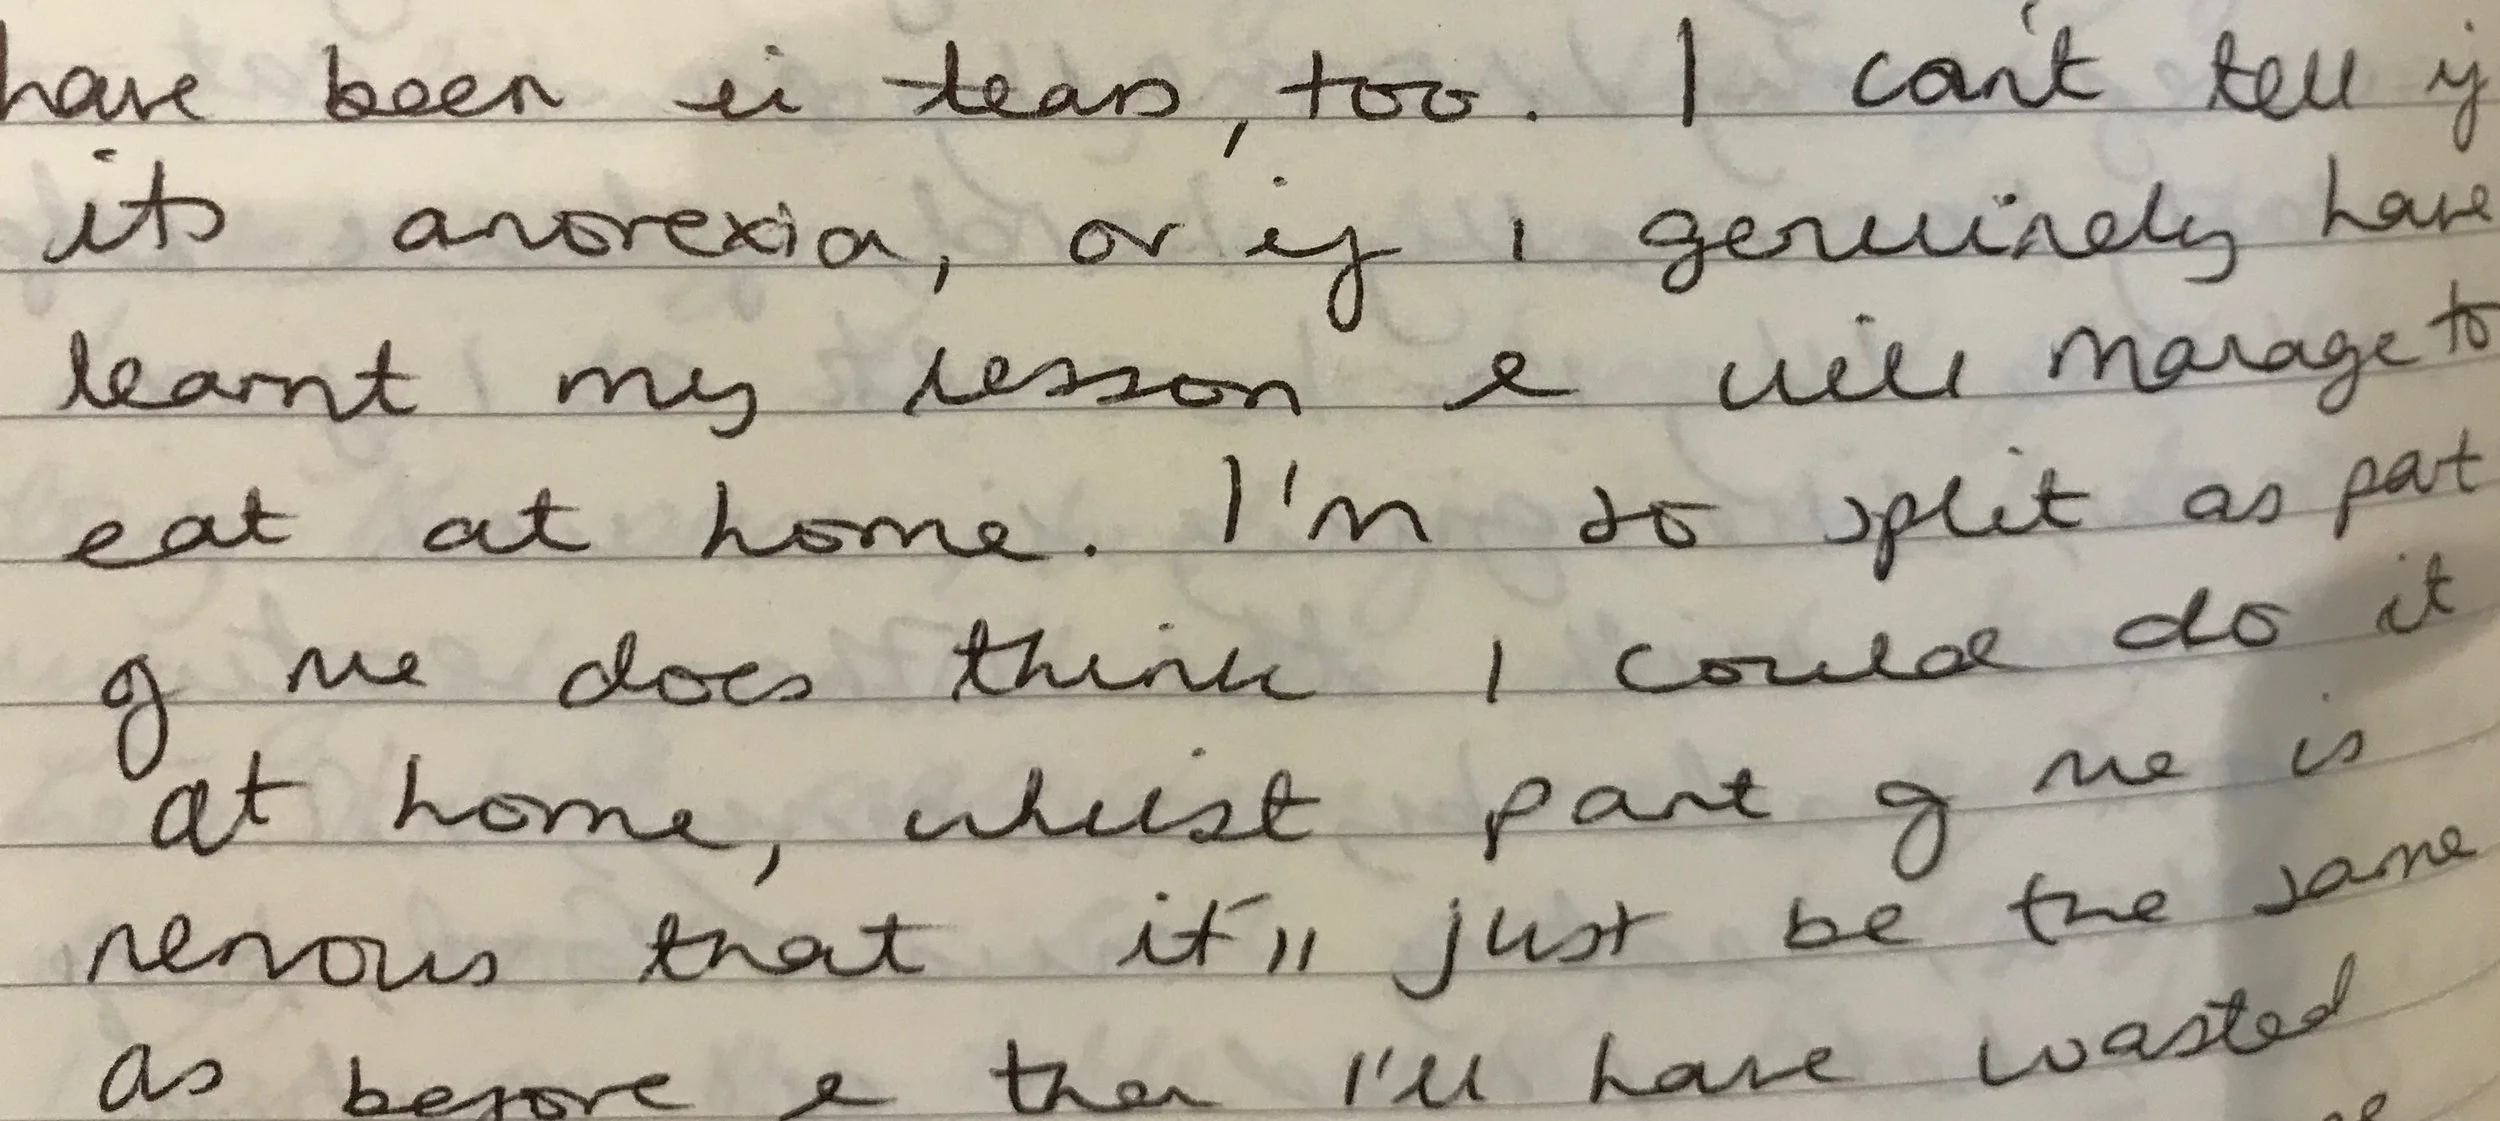 have been in tears, too. I can't tell if
its anorexia, or if I genuinely have
learnt my lesson & will manage to
eat at home. I'm so split as part
of me does think I could do it
at home, whilst part of me is
nervous that it'll just be the same
as before & then I'll have wasted